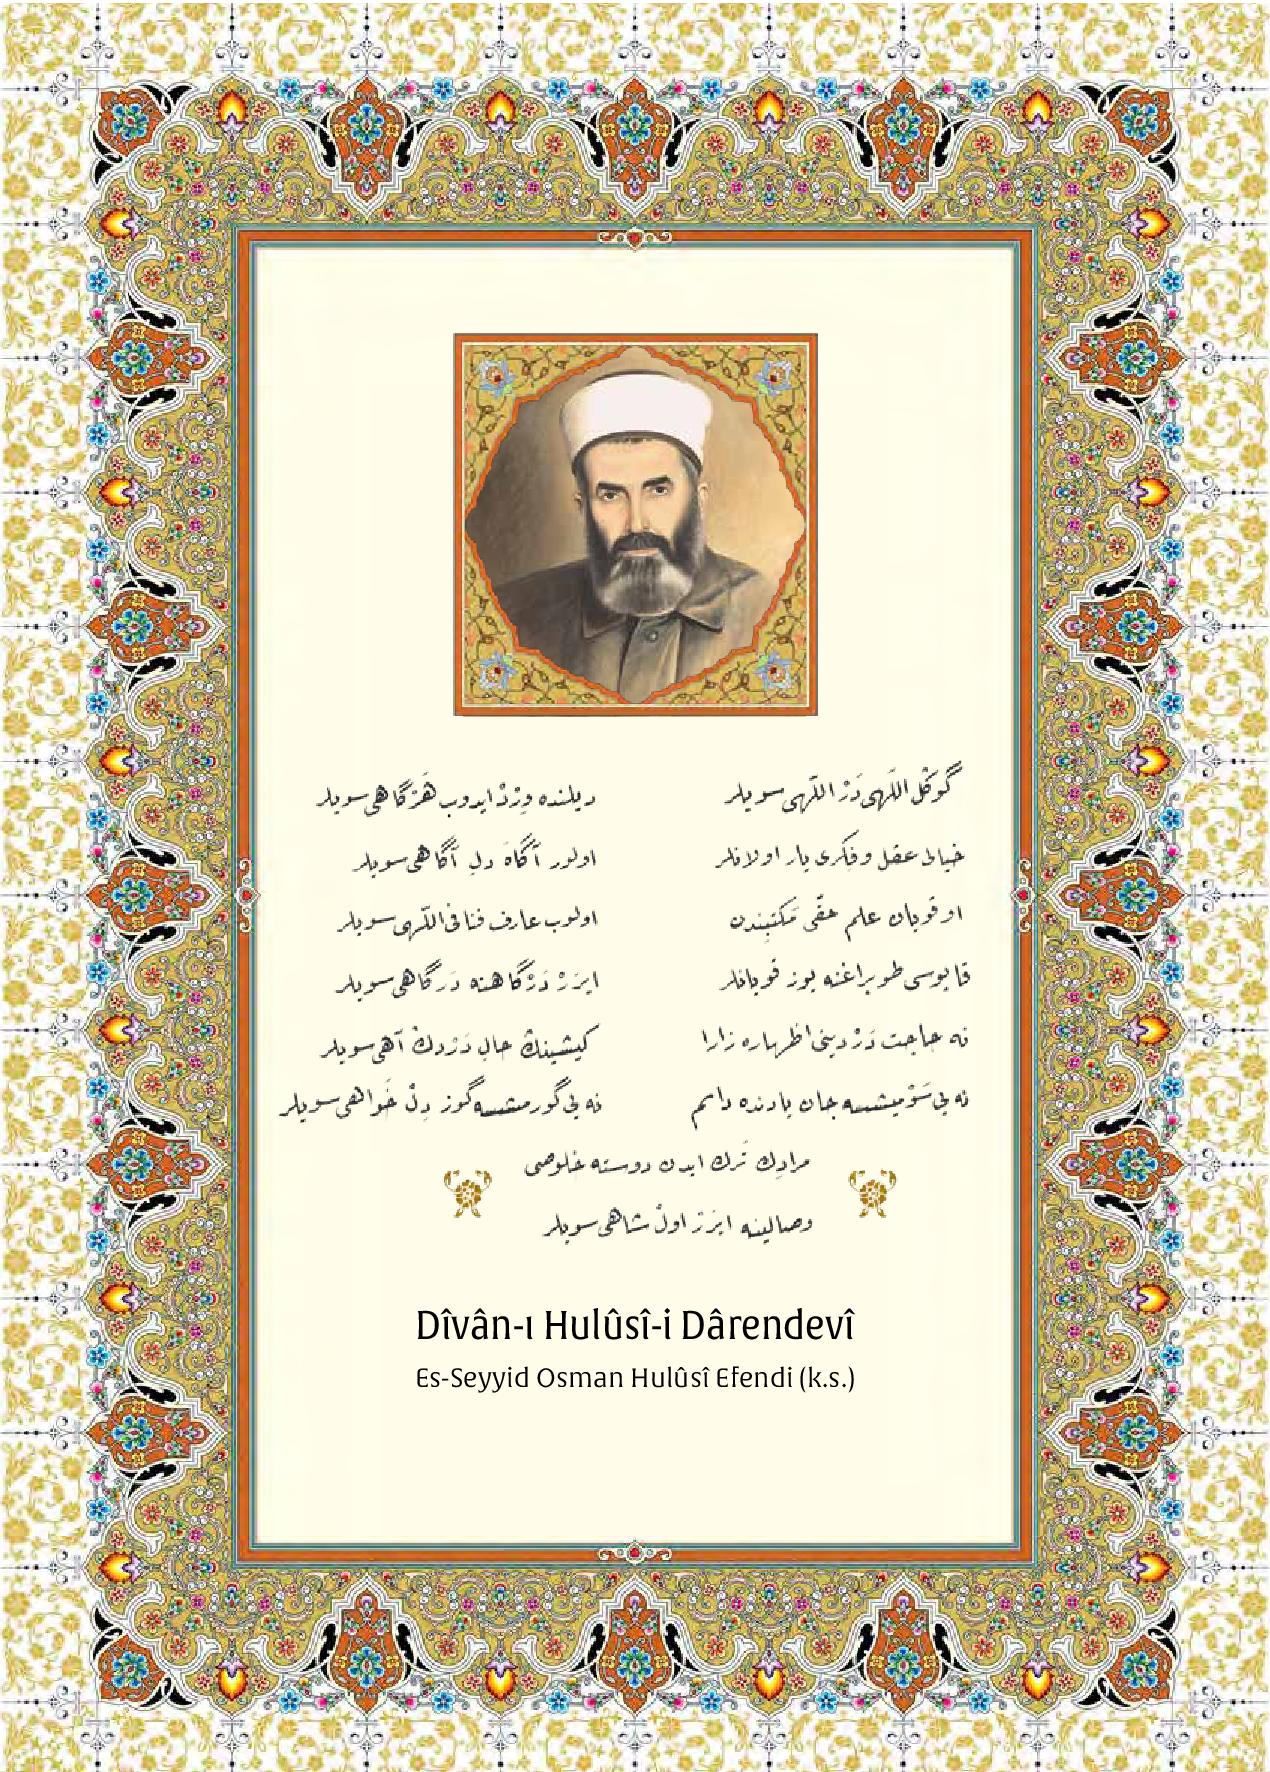 گوكل اللّهی دَرْ اللّهی سویلر
دیلنده وِرْدْ ایدوب هَرْگاهی سویلر
خیالی عقل و فِكری یار اولانلر
اولور آگاهْ دلِ آگاهی سویلر
اوقویان علم حقّی مَكتبِندن
اولوب عارف فنا فی اللّهی سویلر
قاپوسی طوپراغنه یوز قویانلر
ایرَرْ دَرْگاهنه دَرگاهی سویلر
نه حاجت دَرْدینی اظهاره زارا
كیشینڭ حالِ دَرْدڭ آهی سویلر
نه بی سَوْمیشسه جان یادنده دائم
نه بی گورمشسه گوز دِلْ خَواهی سویلر
مرادِڭ تَرك ایدن دوسته خلوصی
وصالینه ایرَرْ اولْ شاهی سویلر
Dîvân-ı Hulûsî-i Dârendevî
Es-Seyyid Osman Hulûsî Efendi (k.s.)